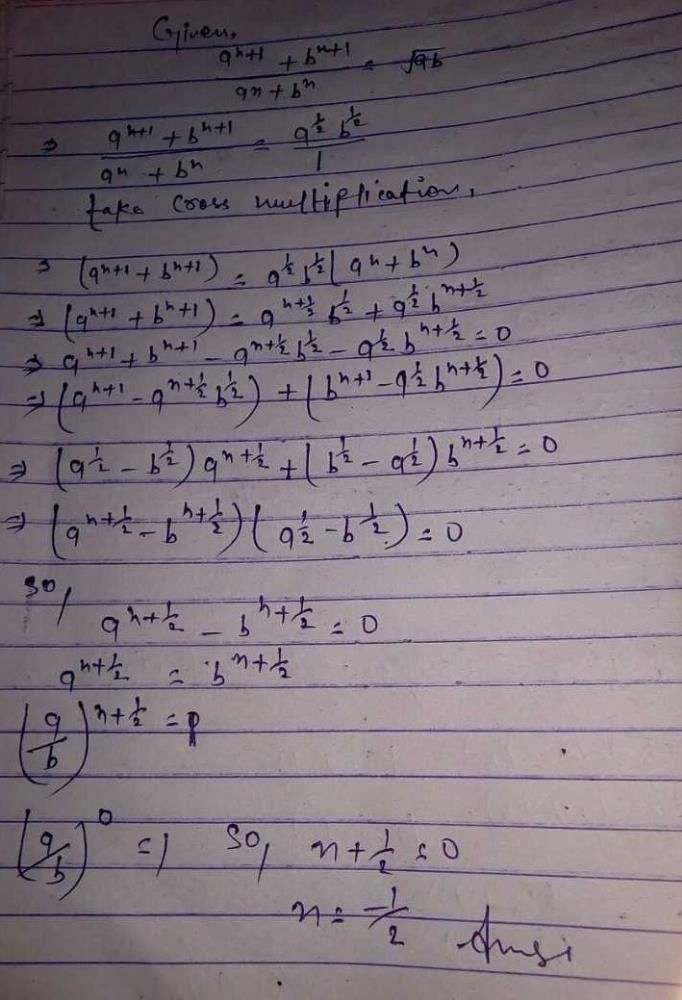 Given,
(a^(n+1) + b^(n+1)) / (a^n + b^n) = √ab
⇒ (a^(n+1) + b^(n+1)) / (a^n + b^n) = (a^(1/2) b^(1/2)) / 1
take cross multiplication,
⇒ (a^(n+1) + b^(n+1)) = a^(1/2) b^(1/2) (a^n + b^n)
⇒ (a^(n+1) + b^(n+1)) = a^(n+1/2) b^(1/2) + a^(1/2) b^(n+1/2)
⇒ a^(n+1) + b^(n+1) - a^(n+1/2) b^(1/2) - a^(1/2) b^(n+1/2) = 0
⇒ (a^(n+1) - a^(n+1/2) b^(1/2)) + (b^(n+1) - a^(1/2) b^(n+1/2)) = 0
⇒ (a^(1/2) - b^(1/2)) a^(n+1/2) + (b^(1/2) - a^(1/2)) b^(n+1/2) = 0
⇒ (a^(n+1/2) - b^(n+1/2)) (a^(1/2) - b^(1/2)) = 0
so, a^(n+1/2) - b^(n+1/2) = 0
a^(n+1/2) = b^(n+1/2)
(a/b)^(n+1/2) = 1
(a/b)^0 = 1 so, n + 1/2 = 0
n = -1/2 Ans: